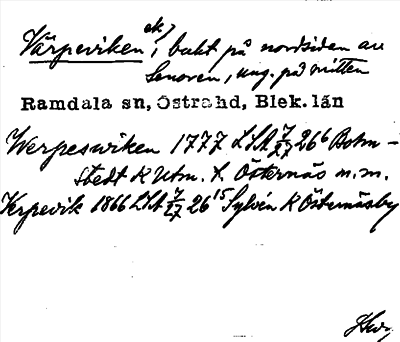 Värpeviken, ek, bukt på nordsidan av
Senoren, ung. på mitten
Ramdala sn, Östra hd, Blek. län
Werpeswiken 1777 LSA 7/27 26⁶ Botm-
stedt K Utm. t. Östernäs m.m.
Verpevik 1866 LSA 7/27 26¹⁵ Sylvén K Östernäsby